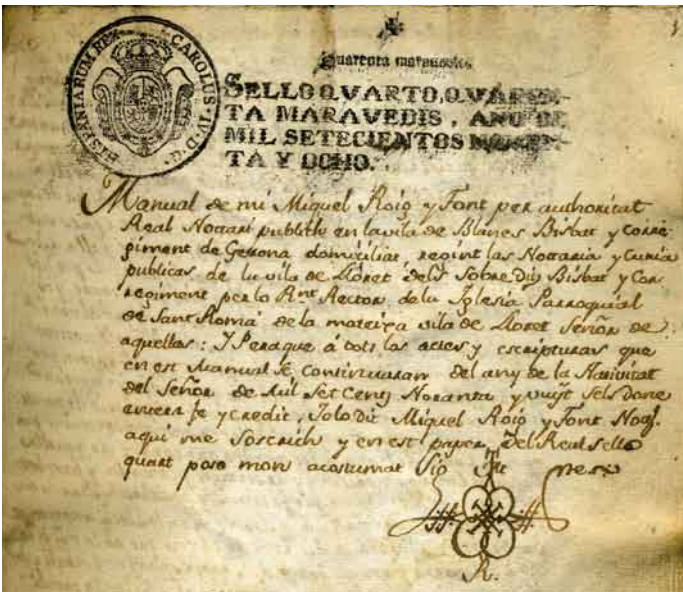 HISPANIARUM REX CAROLUS·IV·D·G·
Quarenta maravedis.
SELLO QVARTO, QVAREN-
TA MARAVEDIS, AÑO DE
MIL SETECIENTOS NOVEN-
TA Y OCHO.
Manual de mi Miquel Roig y Font per authoritat
Real Nottari publich en la vila de Blanes Bisbat y Corre-
giment de Gerona domiciliat, regint las Nottaria y Curia
publicas de la vila de Lloret dels Sobre Dits Bisbat y Cor-
regiment per lo Rnt. Rector de la Iglesia Parroquial
de Sant Romá de la mateixa vila de Lloret Señor de
aquellas: Y Peraque á tots los actes y escripturas que
en est Manual se continuaran del any de la Nativitat
del Señor de Mil Set Cents Noranta y vuyt sels done
entera fe y credit, Jo lo Dit Miquel Roig y Font Nott.
aqui me Soscrich y en est paper del Real sello
quart poso mon acostumat Sig ne
R.